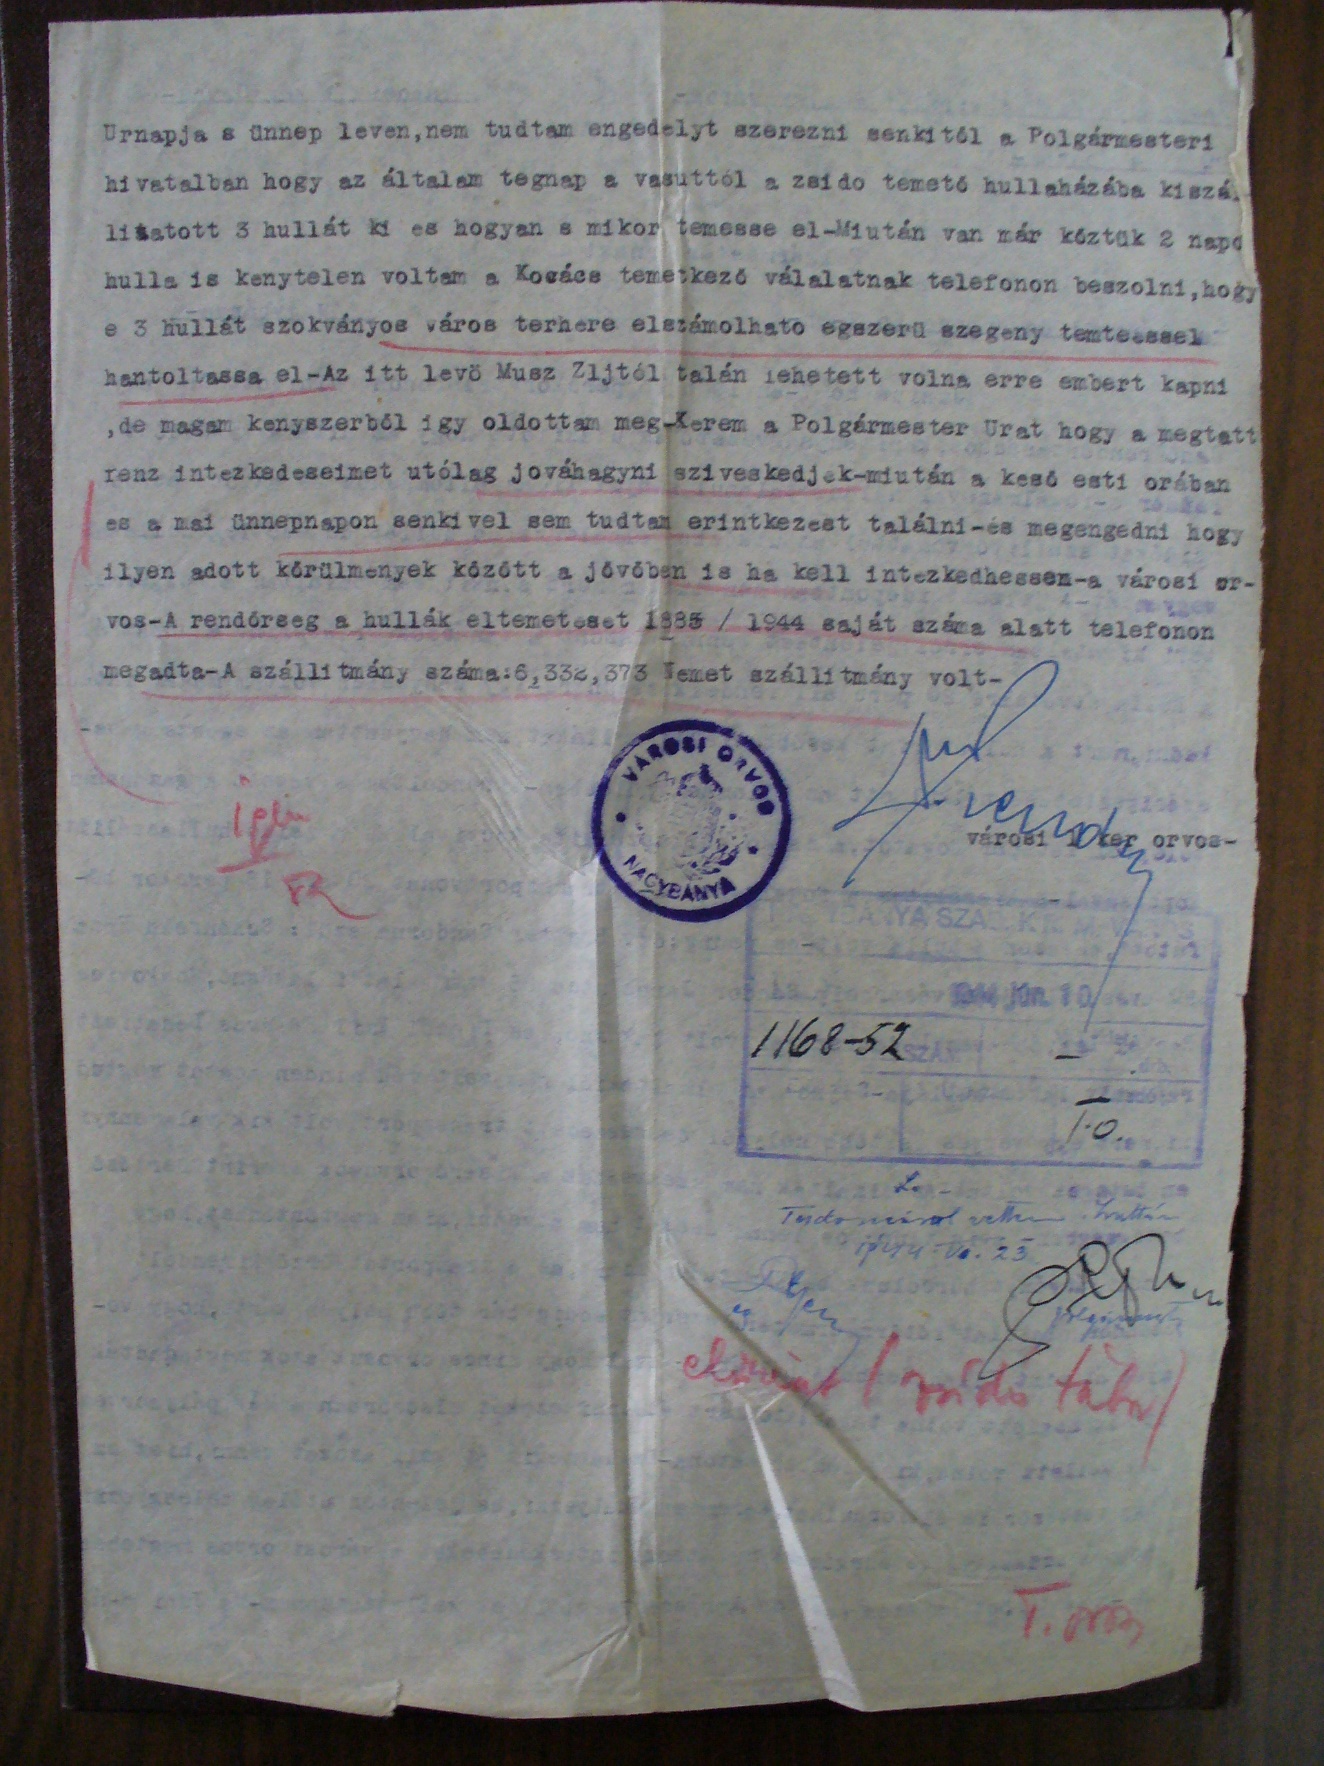 Urnapja s ünnep leven,nem tudtam engedelyt szerezni senkitől a Polgármesteri
hivatalban hogy az általam tegnap a vasuttól a zsido temető hullaházába kiszál
litatott 3 hullát ki es hogyan s mikor temesse el-Miután van már köztük 2 napo
hulla is kenytelen voltam a Kovács temetkező válalatnak telefonon beszolni,hogy
e 3 hullát szokványos város terhere elszámolhato egszerü szegeny temteessel
hantoltassa el-Az itt levő Musz Zljtól talán lehetett volna erre embert kapni
,de magam kenyszerből igy oldottam meg-Kerem a Polgármester Urat hogy a megtatt
renz intezkedeseimet utólag jováhagyni sziveskedjek-miután a keső esti orában
es a mai ünnepnapon senkivel sem tudtam erintkezest találni-és megengedni hogy
ilyen adott körülmenyek között a jövőben is ha kell intezkedhessen-a városi or-
vos-A rendőrseg a hullák eltemeteset 1885 / 1944 saját száma alatt telefonon
megadta-A szállitmány száma:6,332,373 Nemet szállitmány volt-
VÁROSI ORVOS
NAGYBÁNYA
városi 1 ker orvos-
igen
NAGYBÁNYA SZAB. KIR. M. VÁROS
1944 JÚN. 10.
1168-52 SZÁM
I
1.0.
Tudomásul vettem
1944. VI. 23
Polgármester
(zsidó tábor)